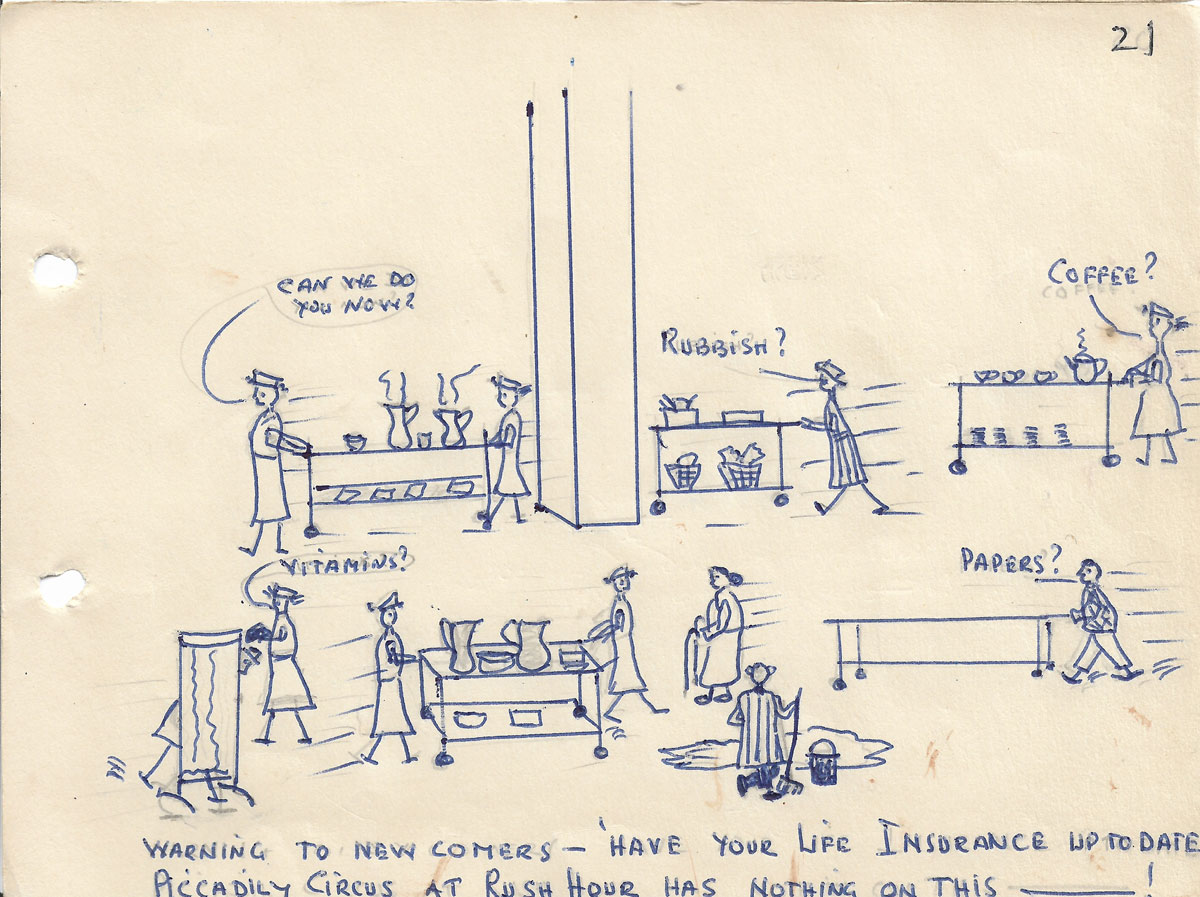 21
CAN WE DO
YOU NOW?
RUBBISH?
COFFEE?
VITAMINS?
PAPERS?
WARNING TO NEW COMERS – 'HAVE YOUR LIFE INSURANCE UP TO DATE
PICCADILY CIRCUS AT RUSH HOUR HAS NOTHING ON THIS ——— !